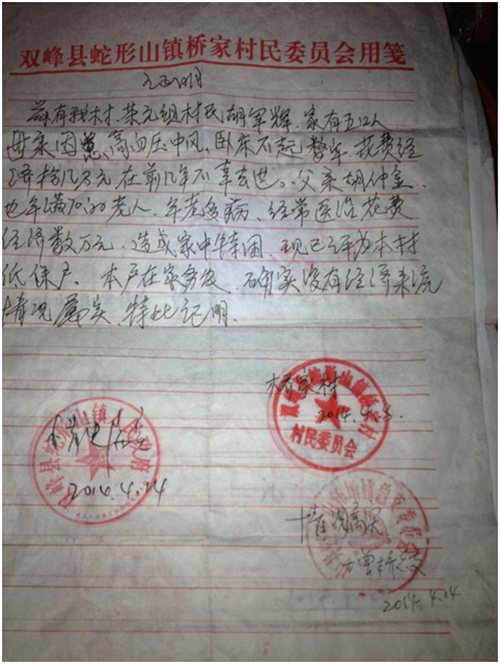 双峰县蛇形山镇桥家村民委员会用笺
证明
兹有我村荣元组村民胡军辉,家有五口人
母亲因患高血压中风,卧床不起数年,花费经
济将几万元在前几年不幸去世。父亲胡仲奎,
也年满70的老人,年老多病,经常医治花费
经济数万元,造成家中特困,现已评为本村
低保户。本户在家务农,确实没有经济来源
情况属实,特此证明。
桥家村
2014.4.
村民委员会
双峰县蛇形山镇
2014.4.14
情况属实
2014.4.14